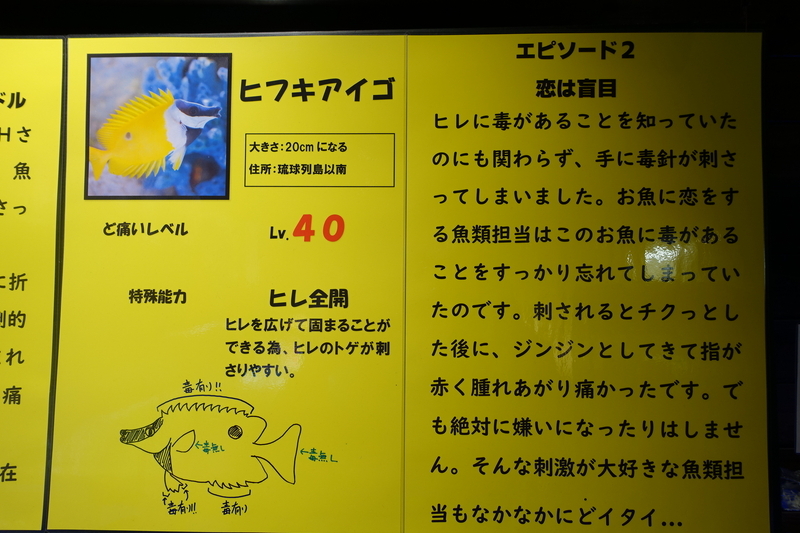 ドル
Hさ
魚
さっ
に折
倒的
れ
痛
在
ヒフキアイゴ
大きさ:20cmになる
住所:琉球列島以南
ど痛いレベル
Lv.40
特殊能力
ヒレ全開
ヒレを広げて固まることが
できる為、ヒレのトゲが刺
さりやすい。
毒有り!!
←毒無し
←毒無し
毒有り!!
毒有り
エピソード2
恋は盲目
ヒレに毒があることを知っていた
のにも関わらず、手に毒針が刺さ
ってしまいました。お魚に恋をす
る魚類担当はこのお魚に毒がある
ことをすっかり忘れてしまってい
たのです。刺されるとチクっとし
た後に、ジンジンとしてきて指が
赤く腫れあがり痛かったです。で
も絶対に嫌いになったりはしませ
ん。そんな刺激が大好きな魚類担
当もなかなかにどイタイ...